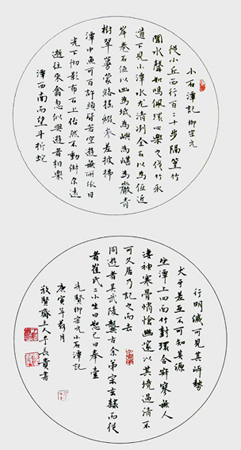 小石潭記 柳宗元
從小丘西行百二十步隔篁竹
聞水聲如鳴佩環心樂之伐竹取
道下見小潭水尤清冽全石以為底近
岸卷石底以出為坻為嶼為嵁為巖青
樹翠蔓蒙絡搖綴參差披拂
潭中魚可百許頭皆若空遊無所依日
光下徹影布石上佁然不動俶爾遠
逝往來翕忽似與遊者相樂
潭西南而望斗折蛇
行明滅可見其岸勢
犬牙差互不可知其源
坐潭上四面竹樹環合寂寥無人
淒神寒骨悄愴幽邃以其境過清不
可久居乃記之而去
同遊者吳武陵龔古余弟宗玄隸而從
者崔氏二小生曰恕己曰奉壹
先賢柳宗元小石潭記
庚寅年月
齋主人長貴書